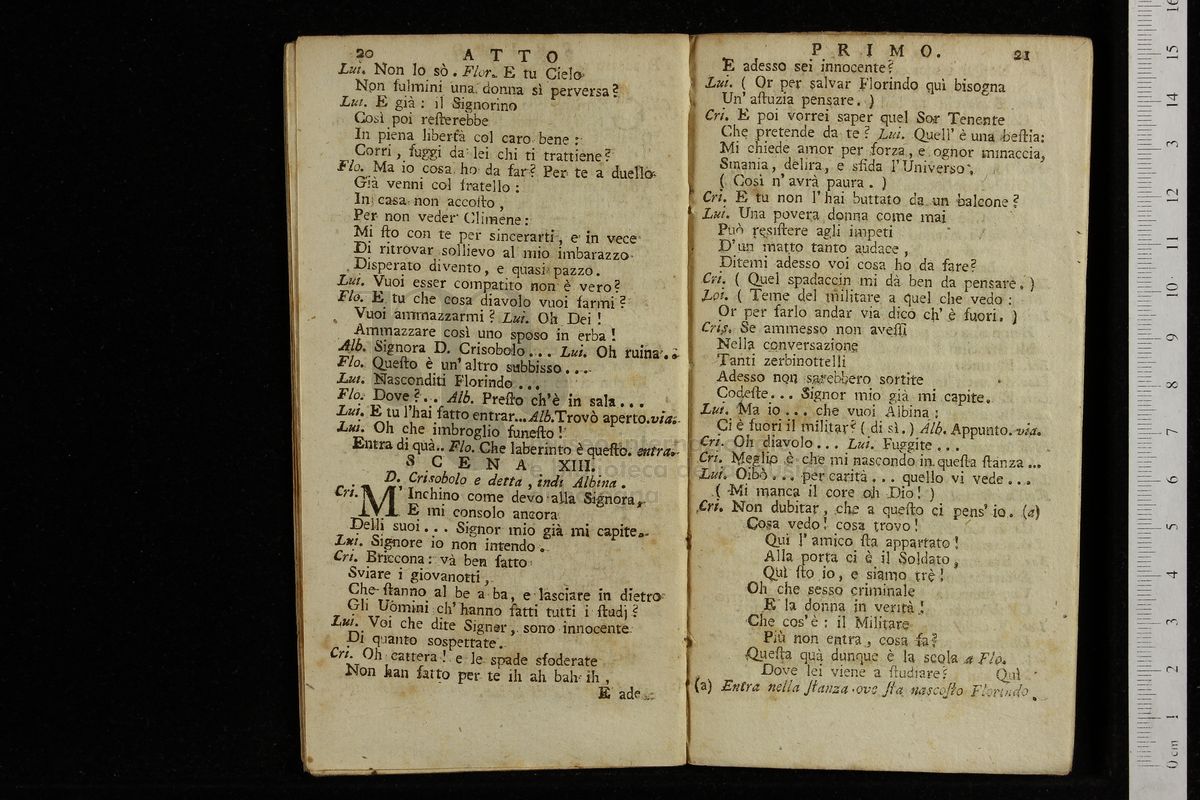 20 ATTO
Lui. Non lo sò. Flor. E tu Cielo
Non fulmini una donna sì perversa?
Lui. E già: il Signorino
Così poi reſterebbe
In piena libertà col caro bene:
Corri, fuggi da lei chi ti trattiene?
Flo. Ma io cosa ho da far? Per te a duello
Già venni col fratello:
In casa non accolto,
Per non veder Climene:
Mi ſto con te per sincerarti, e in vece
Di ritrovar sollievo al mio imbarazzo
Disperato divento, e quasi pazzo.
Lui. Vuoi esser compatito non è vero?
Flo. E tu che cosa diavolo vuoi farmi?
Vuoi ammazzarmi? Lui. Oh Dei!
Ammazzare così uno sposo in erba!
Alb. Signora D. Crisobolo... Lui. Oh ruina..
Flo. Queſto è un' altro subbisso...
Lui. Nasconditi Florindo...
Flo. Dove?.. Alb. Preſto ch'è in sala...
Lui. E tu l'hai fatto entrar... Alb. Trovò aperto. via.
Lui. Oh che imbroglio funeſto!
Entra di quà.. Flo. Che laberinto è queſto. entra.
SCENA XIII.
D. Crisobolo e detta, indi Albina.
Cri. M' Inchino come devo alla Signora,
E mi consolo ancora
Delli suoi... Signor mio già mi capite.
Lui. Signore io non intendo.
Cri. Briccona: và ben fatto
Sviare i giovanotti,
Che ſtanno al be a ba, e lasciare in dietro
Gli Uomini ch' hanno fatti tutti i ſtudj?
Lui. Voi che dite Signor, sono innocente
Di quanto sospettate.
Cri. Oh cattera! e le spade sfoderate
Non han fatto per te ih ah bah ih,
E ade-
PRIMO. 21
E adesso sei innocente?
Lui. ( Or per salvar Florindo quì bisogna
Un' aſtuzia pensare. )
Cri. E poi vorrei saper quel Sor Tenente
Che pretende da te? Lui. Quell' è una beſtia:
Mi chiede amor per forza, e ognor minaccia,
Smania, delira, e sfida l'Universo,
( Così n' avrà paura. )
Cri. E tu non l' hai buttato da un balcone?
Lui. Una povera donna come mai
Può resiſtere agli impeti
D'un matto tanto audace,
Ditemi adesso voi cosa ho da fare?
Cri. ( Quel spadaccin mi dà ben da pensare. )
Loi. ( Teme del militare a quel che vedo:
Or per farlo andar via dico ch' è fuori. )
Cris. Se ammesso non aveſſi
Nella conversazione
Tanti zerbinottelli
Adesso non sarebbero sortite
Codeſte... Signor mio già mi capite.
Lui. Ma io... che vuoi Albina:
Ci è fuori il militar? ( di sì. ) Alb. Appunto. via.
Cri. Oh diavolo... Lui. Fuggite...
Cri. Meglio è che mi nascondo in queſta ſtanza...
Lui. Oibò... per carità... quello vi vede...
( Mi manca il core oh Dio! )
Cri. Non dubitar, che a queſto ci pens' io. (a)
Cosa vedo! cosa trovo!
Quì l' amico ſta appartato!
Alla porta ci è il Soldato,
Quì ſto io, e siamo trè!
Oh che sesso criminale
E' la donna in verità!
Che cos' è: il Militare
Più non entra, cosa fa?
Queſta quà dunque è la scola a Flo.
Dove lei viene a ſtudiare? Quì
(a) Entra nella ſtanza ove ſta nascoſto Florindo.